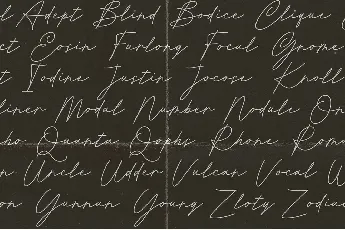 Adept Blind Bodice Clique
Eosin Furlong Focal Gnome
Iodine Justin Jocose Knoll
liner Modal Number Nodule On
ho Quantas Qophs Rhone Roma
n Uncle Udder Vulcan Vocal U
on Yunnan Young Zloty Zodia